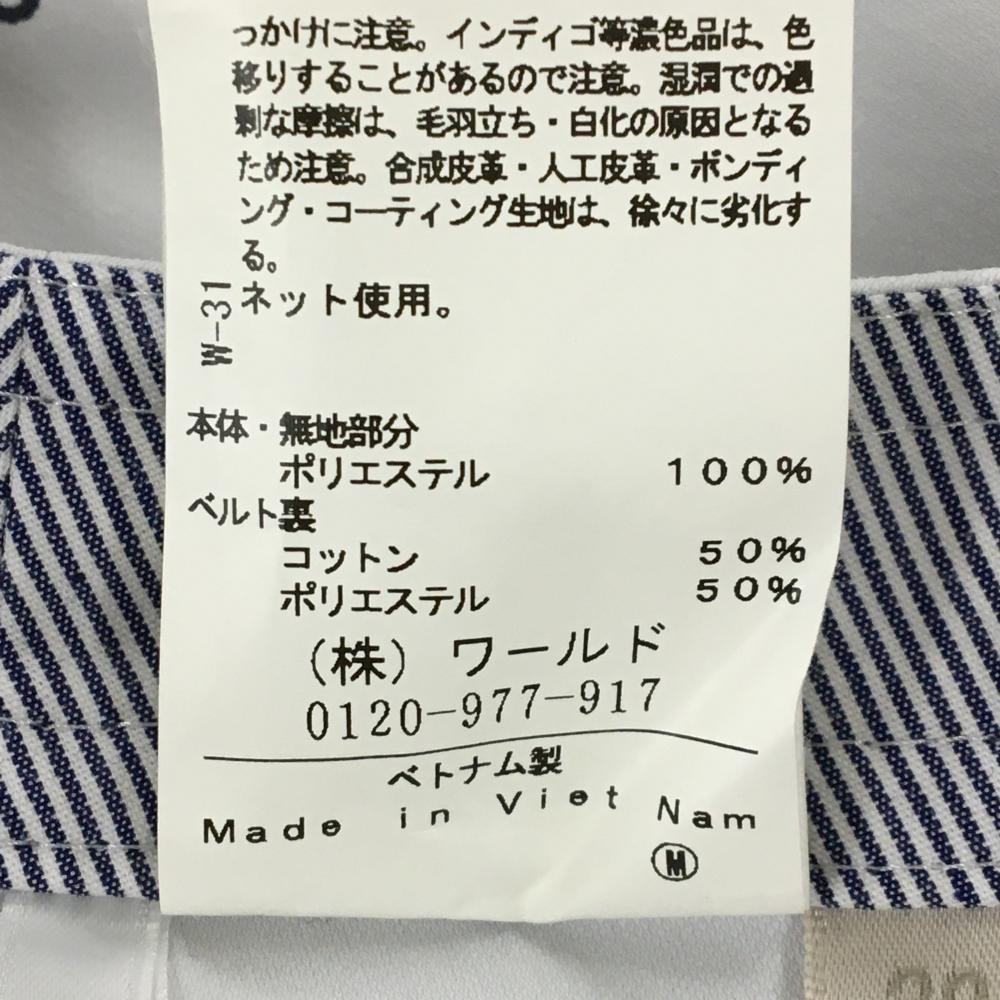 っかけに注意。インディゴ等濃色品は、色
移りすることがあるので注意。湿潤での過
剰な摩擦は、毛羽立ち・白化の原因となる
ため注意。合成皮革・人工皮革・ボンディ
ング・コーティング生地は、徐々に劣化す
る。
ネット使用。
W-31
本体・無地部分
ポリエステル 100%
ベルト裏
コットン 50%
ポリエステル 50%
(株) ワールド
0120-977-917
ベトナム製
Made in Viet Nam
M